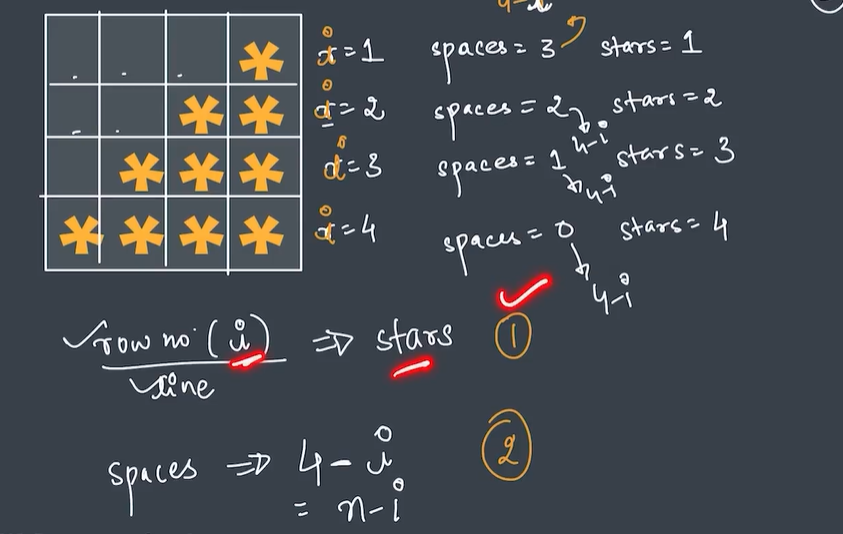 4-i
* i=1 spaces = 3 stars = 1
* * i=2 spaces = 2 stars = 2
4-i
* * * i=3 spaces = 1 stars = 3
4-i
* * * * i=4 spaces = 0 stars = 4
4-i
row no. (i) ⇒ stars 1
line
spaces ⇒ 4-i 2
= n-i